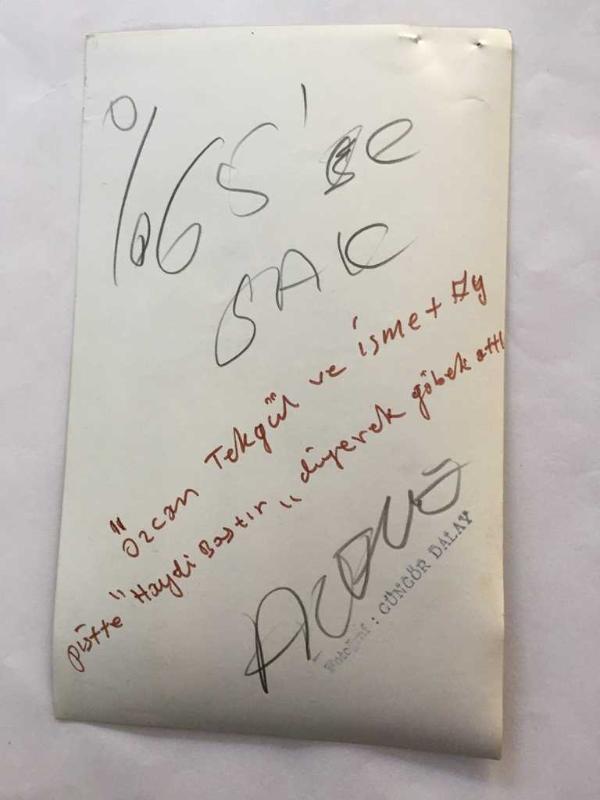 %65'e
Özcan Tekgül ve ismet Ay
piste "Haydi Bastır" diyerek göbek attı
: GÜNGÖR DALAY